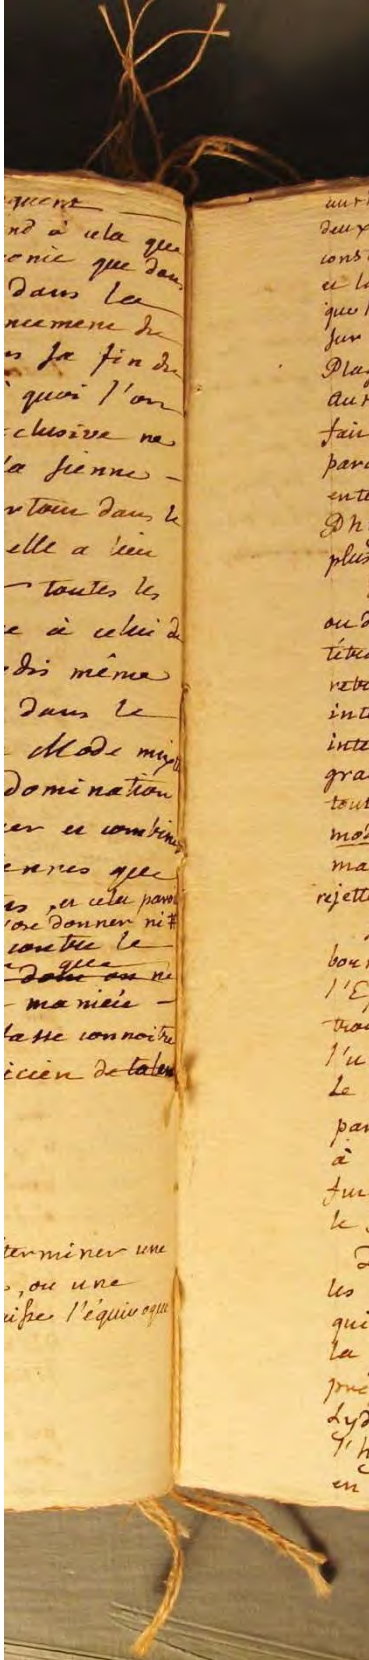 quent
nd à cela que
onie que dans
dans la
ncement du
fin du
quoi l'on
clusive ne
la sienne -
rtout dans le
elle a lieu
- toutes les
e à celui de
dis même
dans le
Mode mixte
Domination
er et combine
enres que
ts, et cela paroi
ose donner ni
contre le
que
dont on ne
- maniere -
lasse connoitre
icien de talent
terminer une
, ou une
aisse l'équivoque
deux
cons
et la
que l
sur
Plag
aur
fair
paro
ente
Ph
plus
ou d
tétra
retr
inte
inte
gra
tout
mod
ma
rejette
bor
l'E
trou
l'u
Le
par
à
fur
le
les
qui
la
pré
Lyd
l'h
en